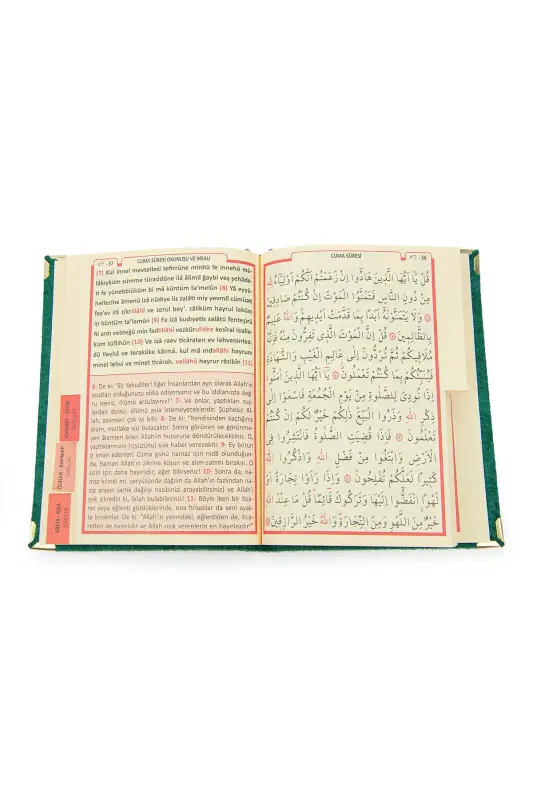 ٥٧ - 57 CUMA SÛRESİ OKUNUŞU VE MEALİ
(7) Kul innel mevtellezî tefirrûne minhü fe innehû mü-
lâkîyküm sümme türaddûne ilâ âlimil ğaybi veş şehâde-
ti fe yünebbiüküm bi mâ küntüm ta'melûn (8) Yâ eyyü-
hellezîne âmenû izâ nûdiye lis salâti miy yevmil cümüati
fes'av ilâ zikrillâhi ve zerul bey'. zâliküm hayrul leküm
in küntüm ta'lemûn (9) Fe izâ kudıyetis salâtü fenteşirû
fil ardı vebteğû min fadlillâhi vezkürullahe kesîral lealle-
küm tüflihûn (10) Ve izâ raev ticâraten ev lehveninfed-
dû ileyhâ ve terakûke kâimâ. kul mâ ındallâhi hayrum
minel lehvi ve minet ticârah. vallâhü hayrur râzikîn (11)
6- De ki: "Ey Yahudiler! Eğer insanlardan ayrı olarak Allah'ın
dostları olduğunuzu iddia ediyorsanız ve bu iddianızda samimi
iseniz, ölümü arzulayınız!" 7- Ve onlar, yaptıkları suç-
lardan dolayı, ölümü asla istemeyeceklerdir. Şüphesiz Al-
lah, zalimleri çok iyi bilir. 8- De ki: "Kendisinden kaçtığınız
ölüm, mutlaka sizi bulacaktır. Sonra görünen ve görünme-
yen âlemleri bilen Allah'ın huzuruna döndürüleceksiniz. O,
yaptıklarınızı (içyüzünü) size haber verecektir. 9- Ey bütün
o iman edenler! Cuma günü namaz için nidâ olunduğun-
da, hemen Allah'ın zikrine koşun ve alım-satımı bırakın. O
sizin için daha hayırlıdır; eğer bilirseniz! 10- Sonra da, na-
maz kılındı mı, yeryüzünde dağılın da Allah'ın fazlından na-
sip arayın (artık dağılıp nasibinizi arayabilirsiniz) ve Allah'ı
çok zikredin ki, felah bulabilesiniz! 11- Böyle iken bir tica-
ret veya eğlenti gördüklerinde, ona fırladılar da seni ayak-
ta bıraktılar. De ki: "Allah'ın yanındaki, eğlentiden de, tica-
retten de hayırlıdır ve Allah rızık verenlerin en hayırlısıdır!"
CUMA SÛRESİ ٥٦ - 56
قُلْ يَا اَيُّهَا الَّذِينَ هَادُوا اِنْ زَعَمْتُمْ اَنَّكُمْ اَوْلِيَاءُ لِلّٰهِ
مِنْ دُونِ النَّاسِ فَتَمَنَّوُا الْمَوْتَ اِنْ كُنْتُمْ صَادِقِينَ
وَلَا يَتَمَنَّوْنَهُ اَبَدًا بِمَا قَدَّمَتْ اَيْدِيهِمْ وَاللّٰهُ عَلِيمٌ
بِالظَّالِمِينَ ۝ قُلْ اِنَّ الْمَوْتَ الَّذِي تَفِرُّونَ مِنْهُ فَاِنَّهُ
مُلَاقِيكُمْ ثُمَّ تُرَدُّونَ اِلٰى عَالِمِ الْغَيْبِ وَالشَّهَادَةِ
فَيُنَبِّئُكُمْ بِمَا كُنْتُمْ تَعْمَلُونَ ۝ يَا اَيُّهَا الَّذِينَ اٰمَنُوا
اِذَا نُودِيَ لِلصَّلٰوةِ مِنْ يَوْمِ الْجُمُعَةِ فَاسْعَوْا اِلٰى
ذِكْرِ اللّٰهِ وَذَرُوا الْبَيْعَ ذٰلِكُمْ خَيْرٌ لَكُمْ اِنْ كُنْتُمْ
تَعْلَمُونَ ۝ فَاِذَا قُضِيَتِ الصَّلٰوةُ فَانْتَشِرُوا فِي
الْاَرْضِ وَابْتَغُوا مِنْ فَضْلِ اللّٰهِ وَاذْكُرُوا اللّٰهَ
كَثِيرًا لَعَلَّكُمْ تُفْلِحُونَ ۝ وَاِذَا رَاَوْا تِجَارَةً اَوْ
لَهْوًا انْفَضُّوا اِلَيْهَا وَتَرَكُوكَ قَائِمًا قُلْ مَا عِنْدَ اللّٰهِ
خَيْرٌ مِنَ اللَّهْوِ وَمِنَ التِّجَارَةِ وَاللّٰهُ خَيْرُ الرَّازِقِينَ ۝